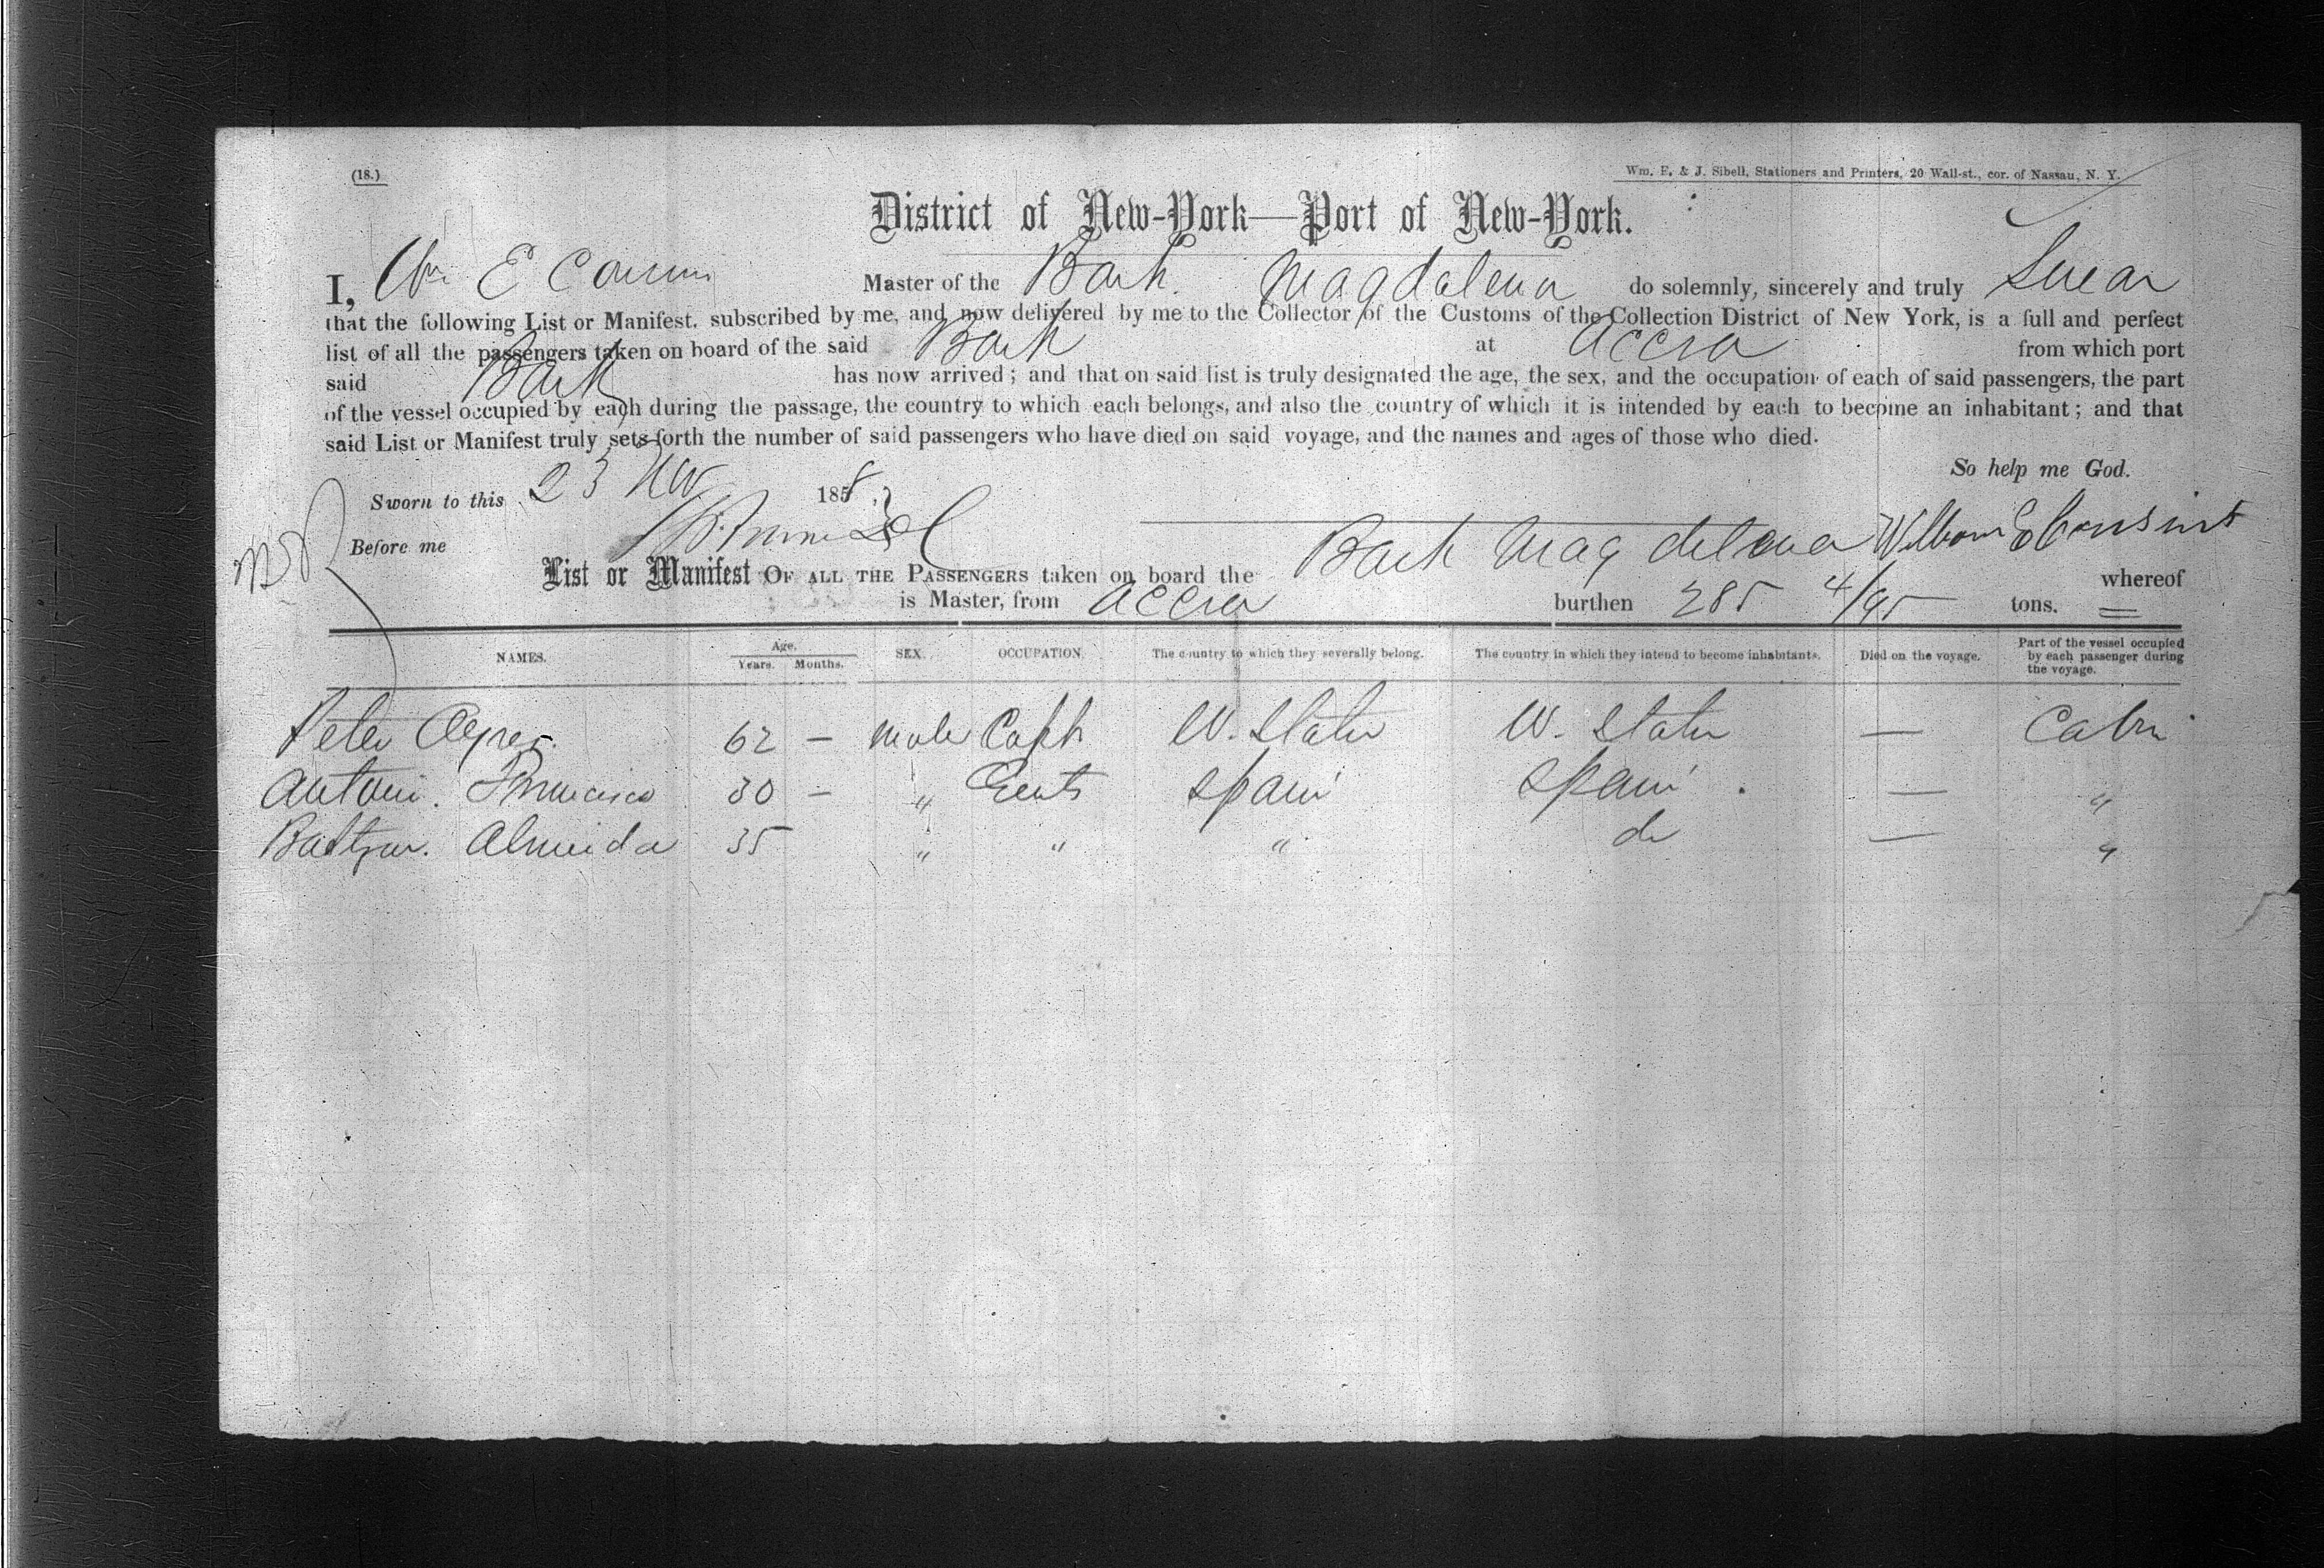 (18.)
Wm. E. & J. Sibell, Stationers and Printers, 20 Wall-st., cor. of Nassau, N. Y.
District of New-York—Port of New-York.
I, Wm E Cousins Master of the Bark Magdalena do solemnly, sincerely and truly Swear
that the following List or Manifest, subscribed by me, and now delivered by me to the Collector of the Customs of the Collection District of New York, is a full and perfect
list of all the passengers taken on board of the said Bark at Accra from which port
said Bark has now arrived; and that on said list is truly designated the age, the sex, and the occupation of each of said passengers, the part
of the vessel occupied by each during the passage, the country to which each belongs, and also the country of which it is intended by each to become an inhabitant; and that
said List or Manifest truly sets forth the number of said passengers who have died on said voyage, and the names and ages of those who died.
So help me God.
Sworn to this 23 Nov 1858,
William E Cousins
Before me
List or Manifest OF ALL THE PASSENGERS taken on board the Bark Magdelena whereof
is Master, from Accra burthen 285 4/95 tons.
NAMES. Age. Years. Months. SEX. OCCUPATION. The country to which they severally belong. The country in which they intend to become inhabitants. Died on the voyage. Part of the vessel occupied by each passenger during the voyage.
Peter Ayres. 62 — male Capt U. States U. States — Cabin
Antoni. Francisco 30 — " Gents Spain Spain — "
Baltzar. Almeida 35 " " " do — "